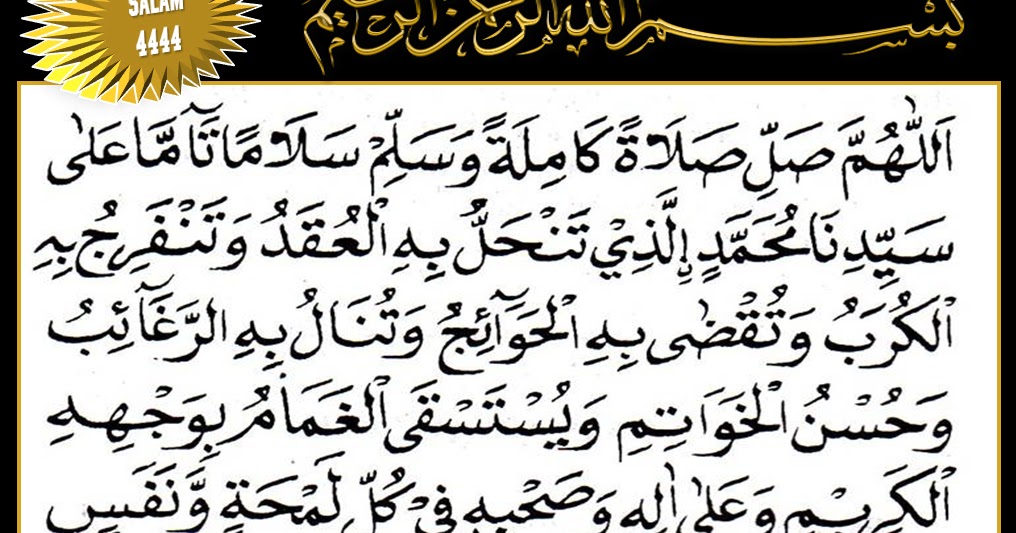 SALAM
4444
بسم الله الرحمن الرحيم
اَللّٰهُمَّ صَلِّ صَلَاةً كَامِلَةً وَسَلِّمْ سَلَامًا تَآمًّا عَلٰى
سَيِّدِنَا مُحَمَّدٍ اِلَّذِيْ تَنْحَلُّ بِهِ الْعُقَدُ وَتَنْفَرِجُ بِهِ
الْكُرَبُ وَتُقْضٰى بِهِ الْحَوَآئِجُ وَتُنَالُ بِهِ الرَّغَآئِبُ
وَحُسْنُ الْخَوَاتِمِ وَيُسْتَسْقَى الْغَمَامُ بِوَجْهِهِ
الْكَرِيْمِ وَعَلٰى اٰلِهِ وَصَحْبِهِ فِيْ كُلِّ لَمْحَةٍ وَّنَفَسٍ